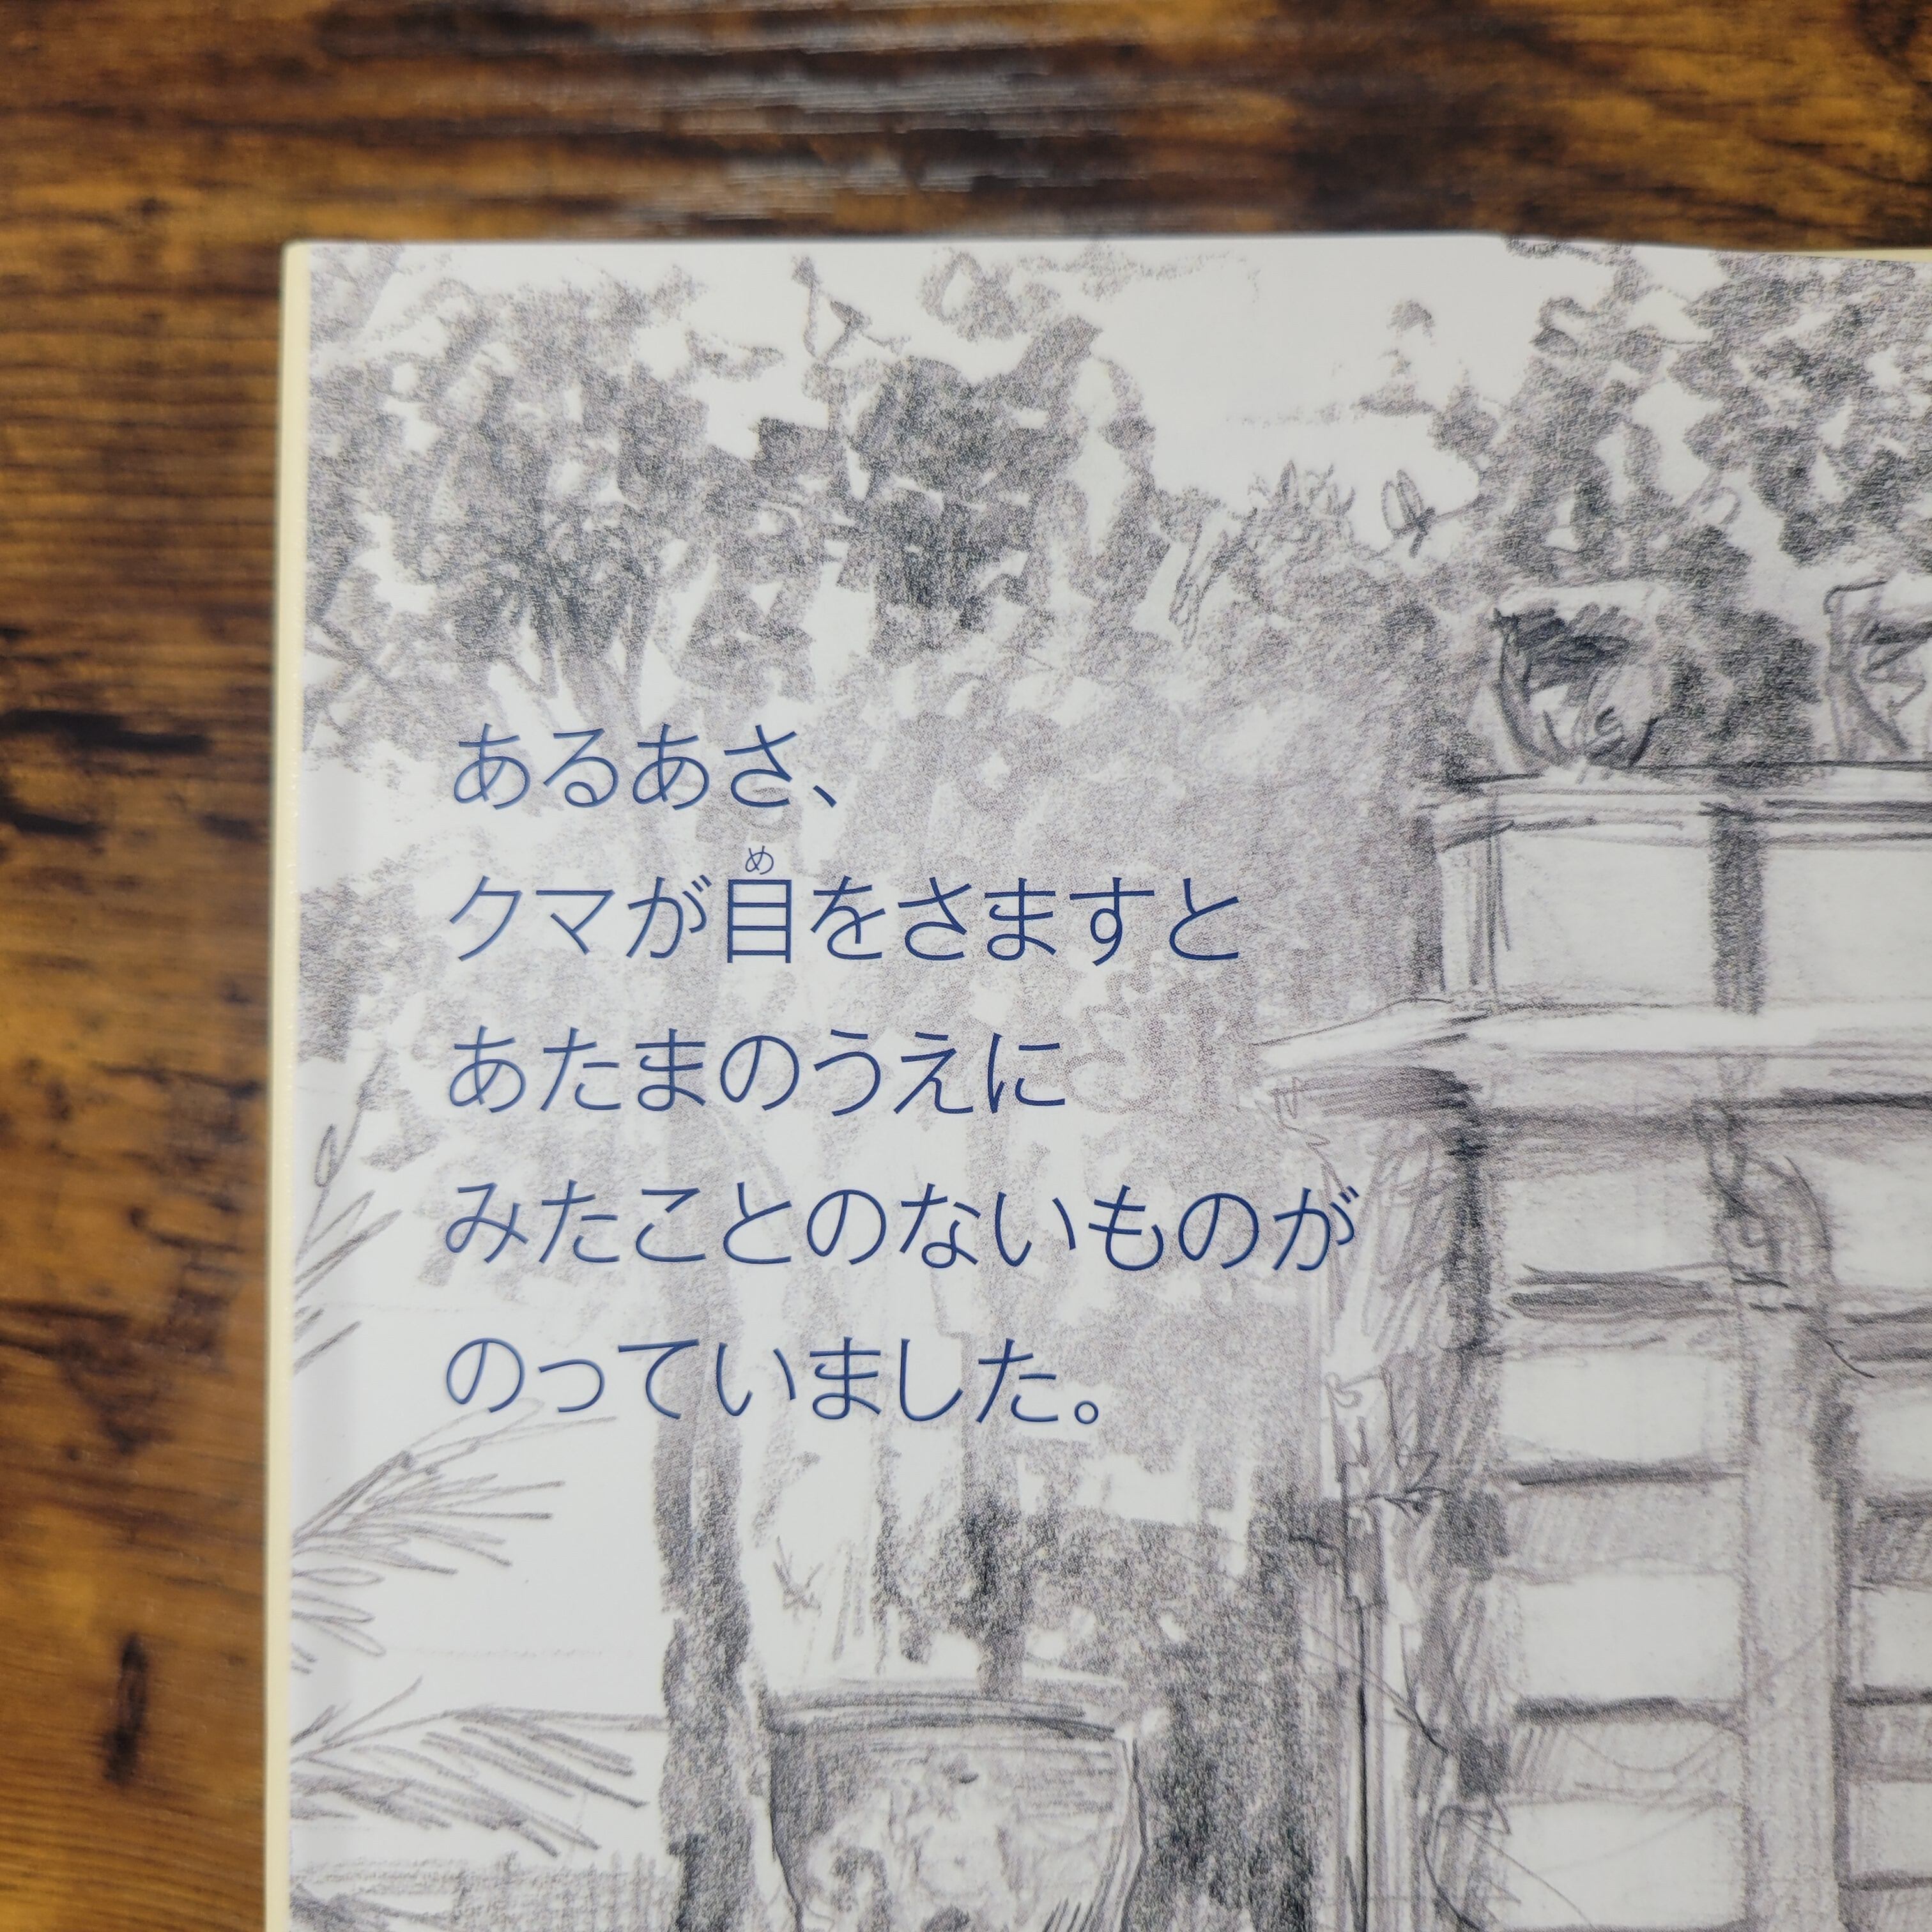 あるあさ、
クマが目をさますと
あたまのうえに
みたことのないものが
のっていました。